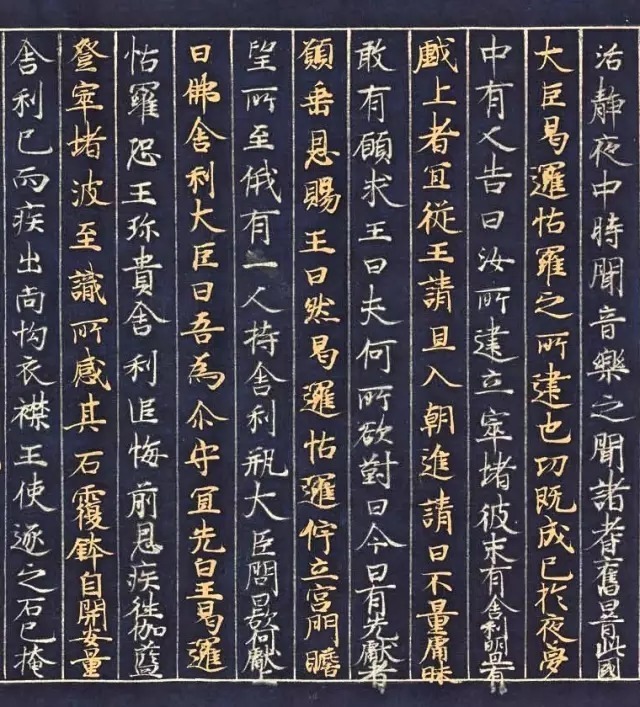 活静夜中時聞音樂之聞諸耆舊昔此國
大臣曷邏怙羅之所建也功既成已於夜夢
中有人告曰汝所建立窣堵彼未有舍利明旦有
獻上者宜從王請旦入朝進請曰不量庸昧
敢有願求王曰夫何所欲對曰今日有先獻者
願垂恩賜王曰然曷邏怙邏佇立宮門瞻
望所至俄有一人持舍利瓶大臣問曰欲何獻上
日佛舍利大臣曰吾為尒守宜先白王曷邏
怙羅恐王珎貴舍利追悔前恩疾往伽藍
登窣堵波至識所感其石覆鉢自開安量
舍利已而疾出尚拘衣襟王使逐之石已掩